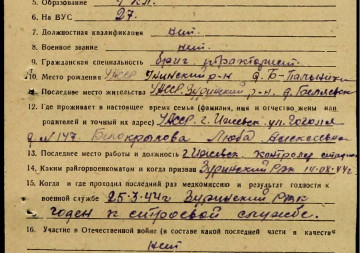 5. Образование 4 кл.
6. На ВУС 27.
7. Должностная квалификация нит.
8. Военное звание нит.
9. Гражданская специальность бриг. тракторист
10. Место рождения УАССР р-н д.
11. Последнее место жительства УАССР. Зуринский р-н. д.
12. Где проживает в настоящее время семья (фамилия, имя и отчество жены или
родителей и точный их адрес) УАССР. г. Ижевск ул. Гоголя
д № 147. Белокрылова Люба
13. Последнее место работы и должность г Ижевск.
14. Каким райгорвоенкоматом и когда призван Зуринский РВК
15. Когда и где проходил последний раз медкомиссию и результат годности к
военной службе 25.3.44г Зуринский РВК
годен к строевой службе.
16. Участие в Отечественной войне (в составе какой последней части и в качестве
нит